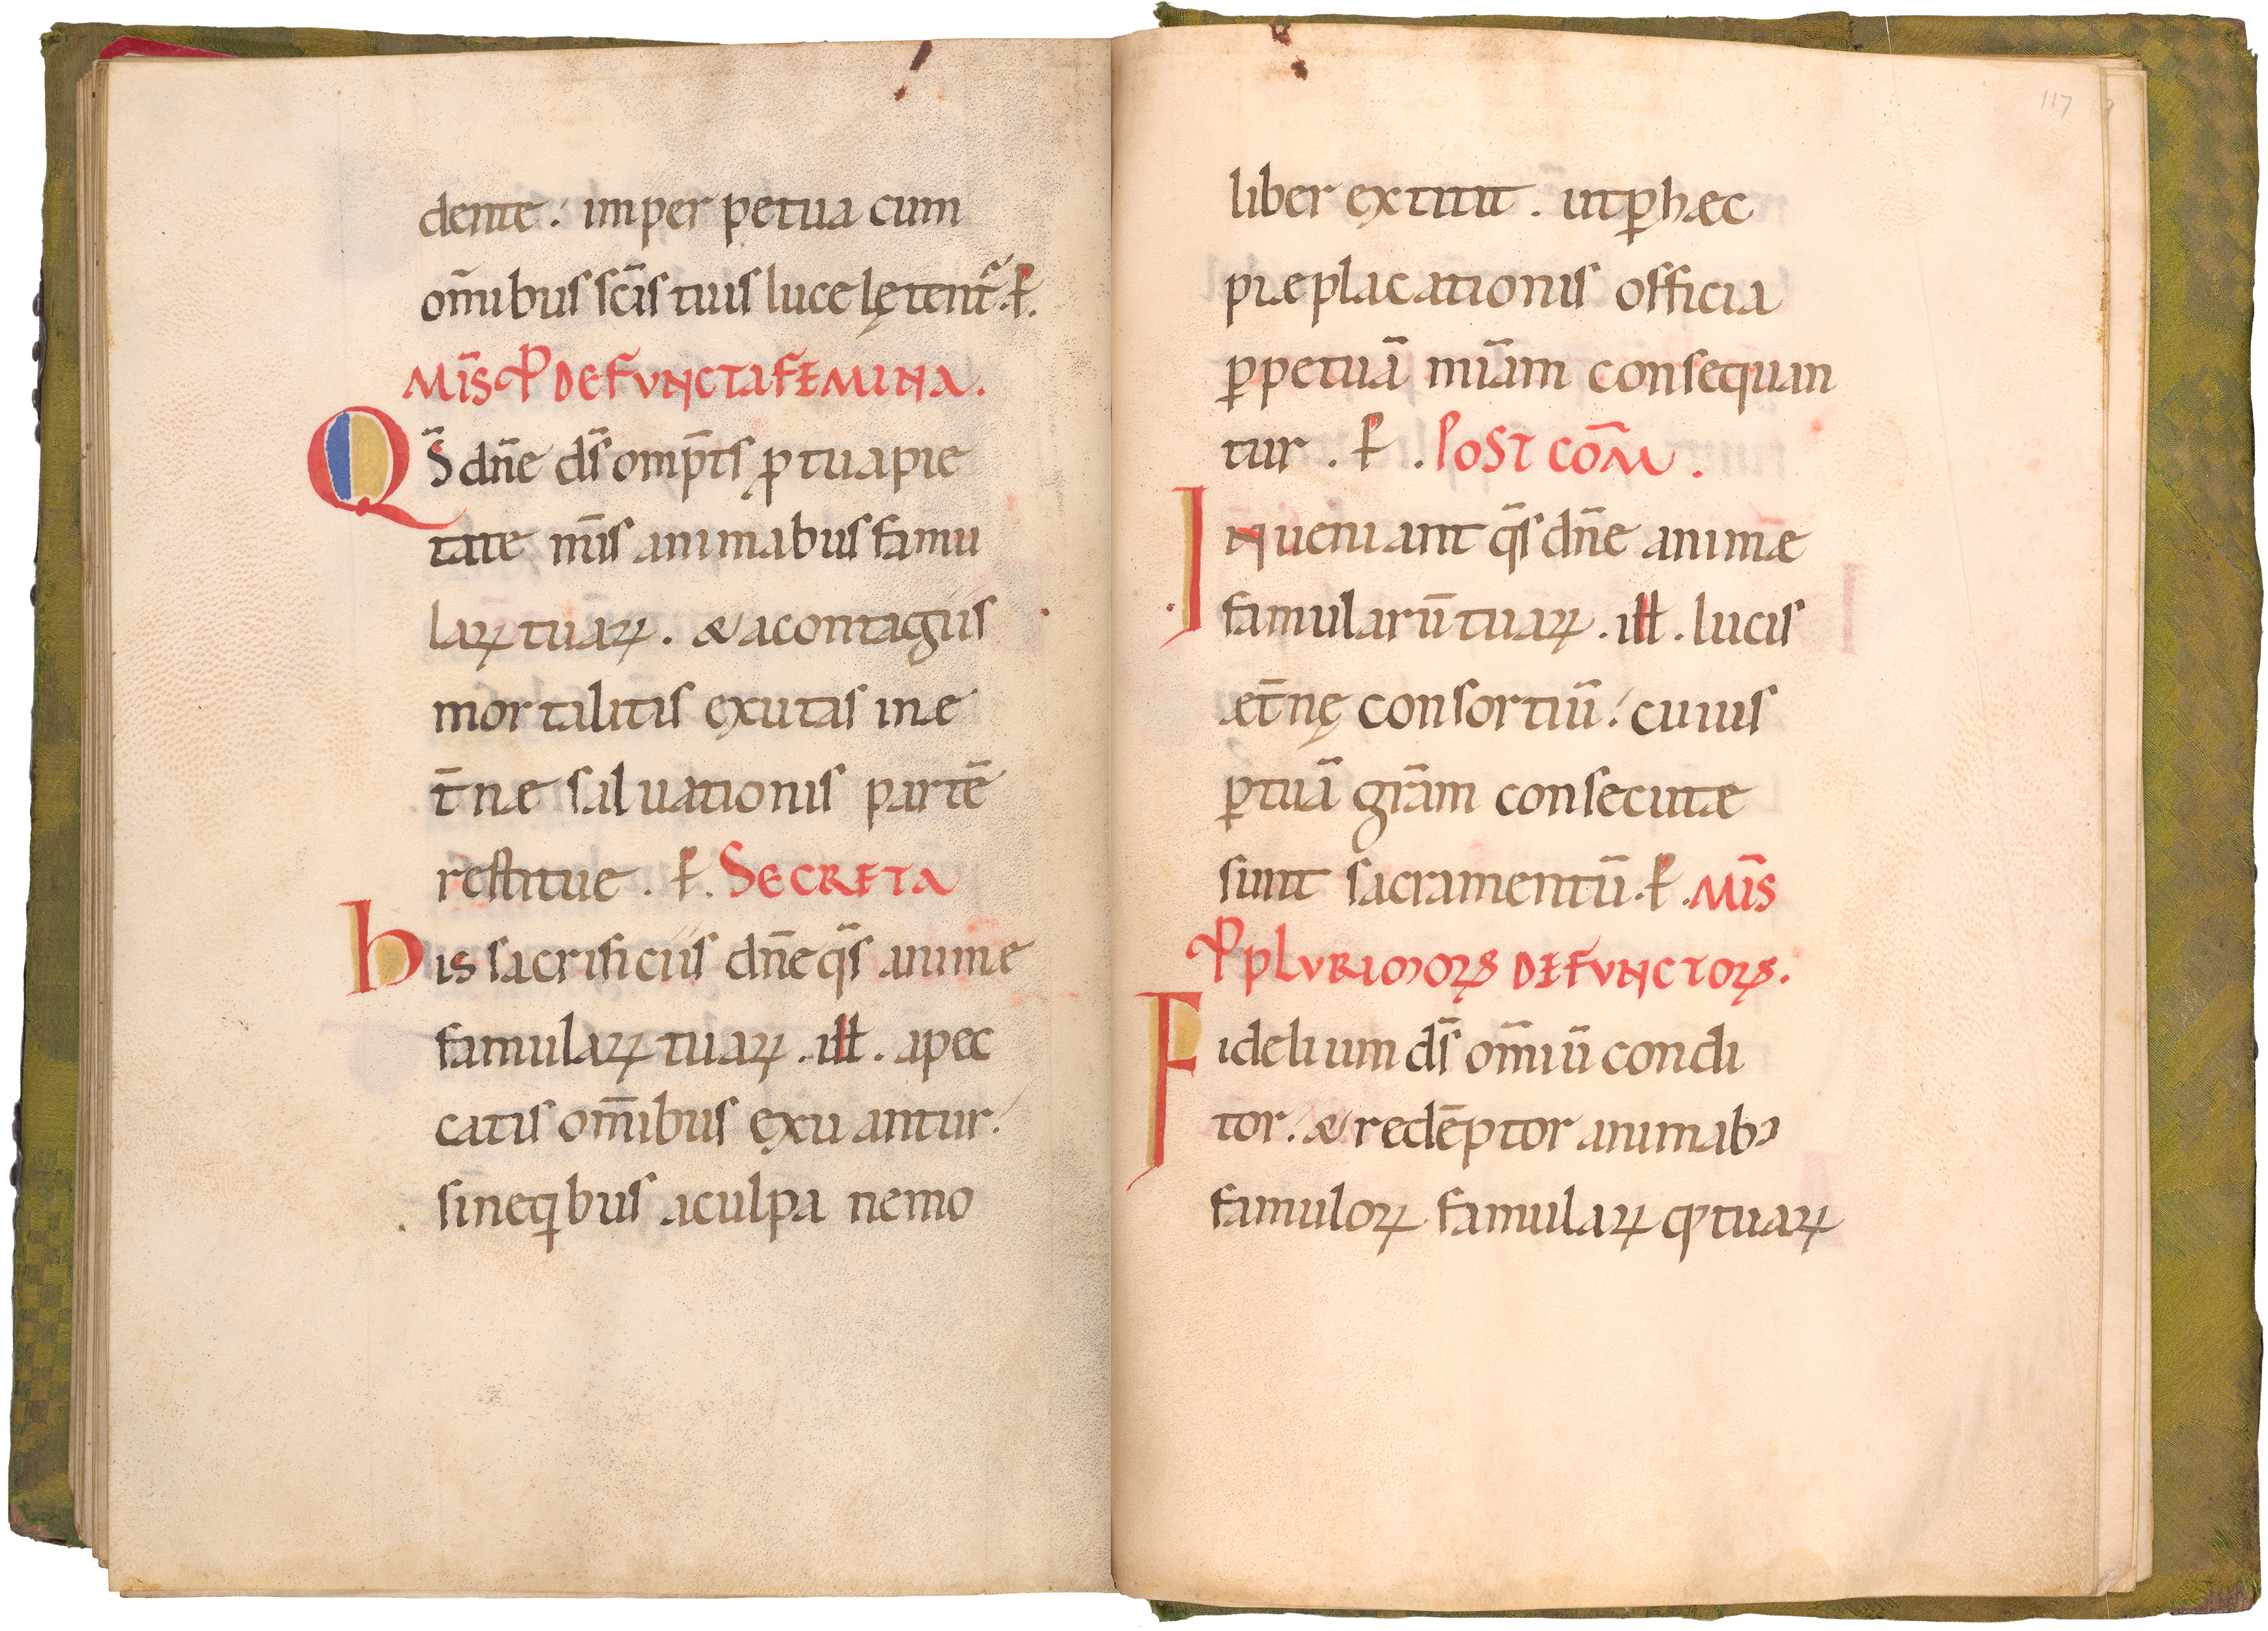 dente. imper petua cum
om̄ibus sc̄is tuis luce lętent᷑. P̶.
MIS̄ P DEFUNCTA FEMINA.
QS̄ dn̄e ds̄ omp̄ts ꝓ tua pie
tate mis̄ animabus famu
laꝝ tuaꝝ. & a contagiis
mortalitis exutas in æ
t̄næ saluationis partē
restitue. P̶. SECRETA
his sacrificiis dn̄e qs̄ animæ
famulaꝝ tuaꝝ. ill̶. a pec
catis om̄ibus exuantur.
sine qibus a culpa nemo
117
liber extitit. ut ꝑ hæc
piæ placationis officia
ꝑpetuā mīam consequan
tur. P̶. POST COM̄.
INueniant qs̄ dn̄e animæ
famularū tuaꝝ. ill̶. lucis
æt̄nę consortiū. cuius
ꝑ tuā grām consecutæ
sunt sacramentū. P̶. MIS̄
P PLURIMOꝜ DEFUNCTOꝜ.
Fidelium ds̄ om̄iū condi
tor. & redēptor animabꝰ
famuloꝝ famulaꝝ qꝫ tuaꝝ